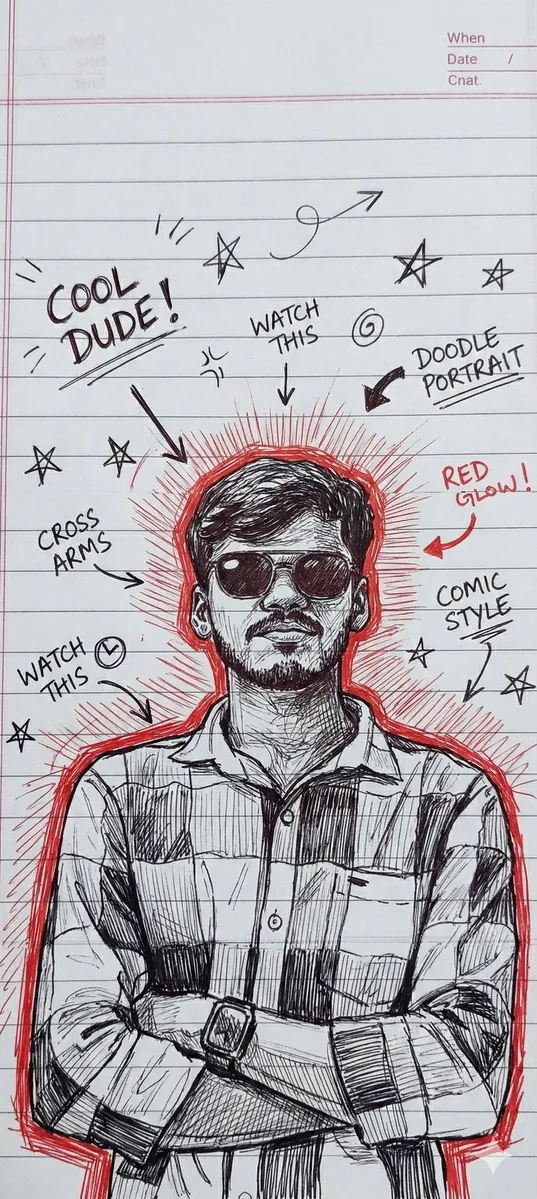 When
Date /
Cnat.
COOL
DUDE!
WATCH
THIS
DOODLE
PORTRAIT
RED
GLOW!
CROSS
ARMS
COMIC
STYLE
WATCH
THIS